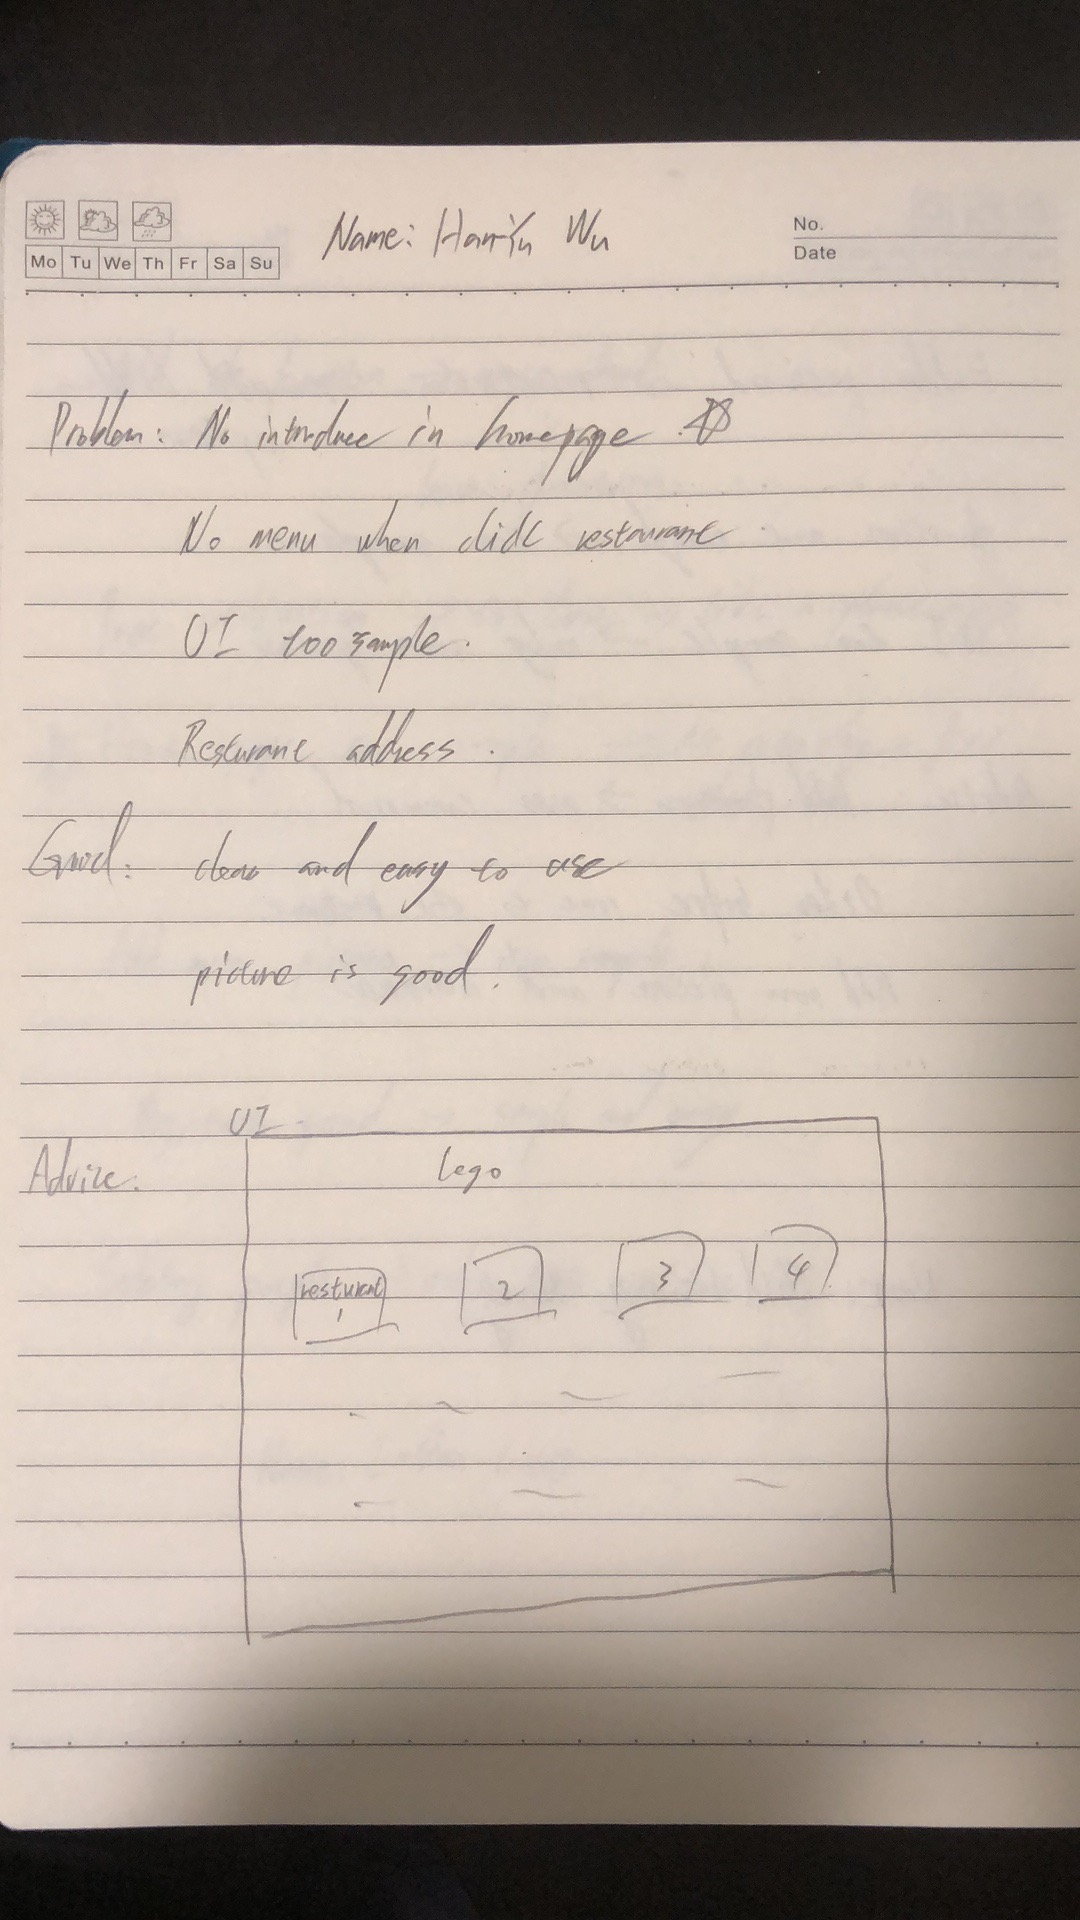 Name: Han-Yu Wu
No.
Date
Mo Tu We Th Fr Sa Su
Problem: No introduce in homepage
No menu when click resturant
UI too sample.
Resturant address.
Good: clean and easy to use
picture is good.
UI
Advice:
logo
resturant 1 2 3 4